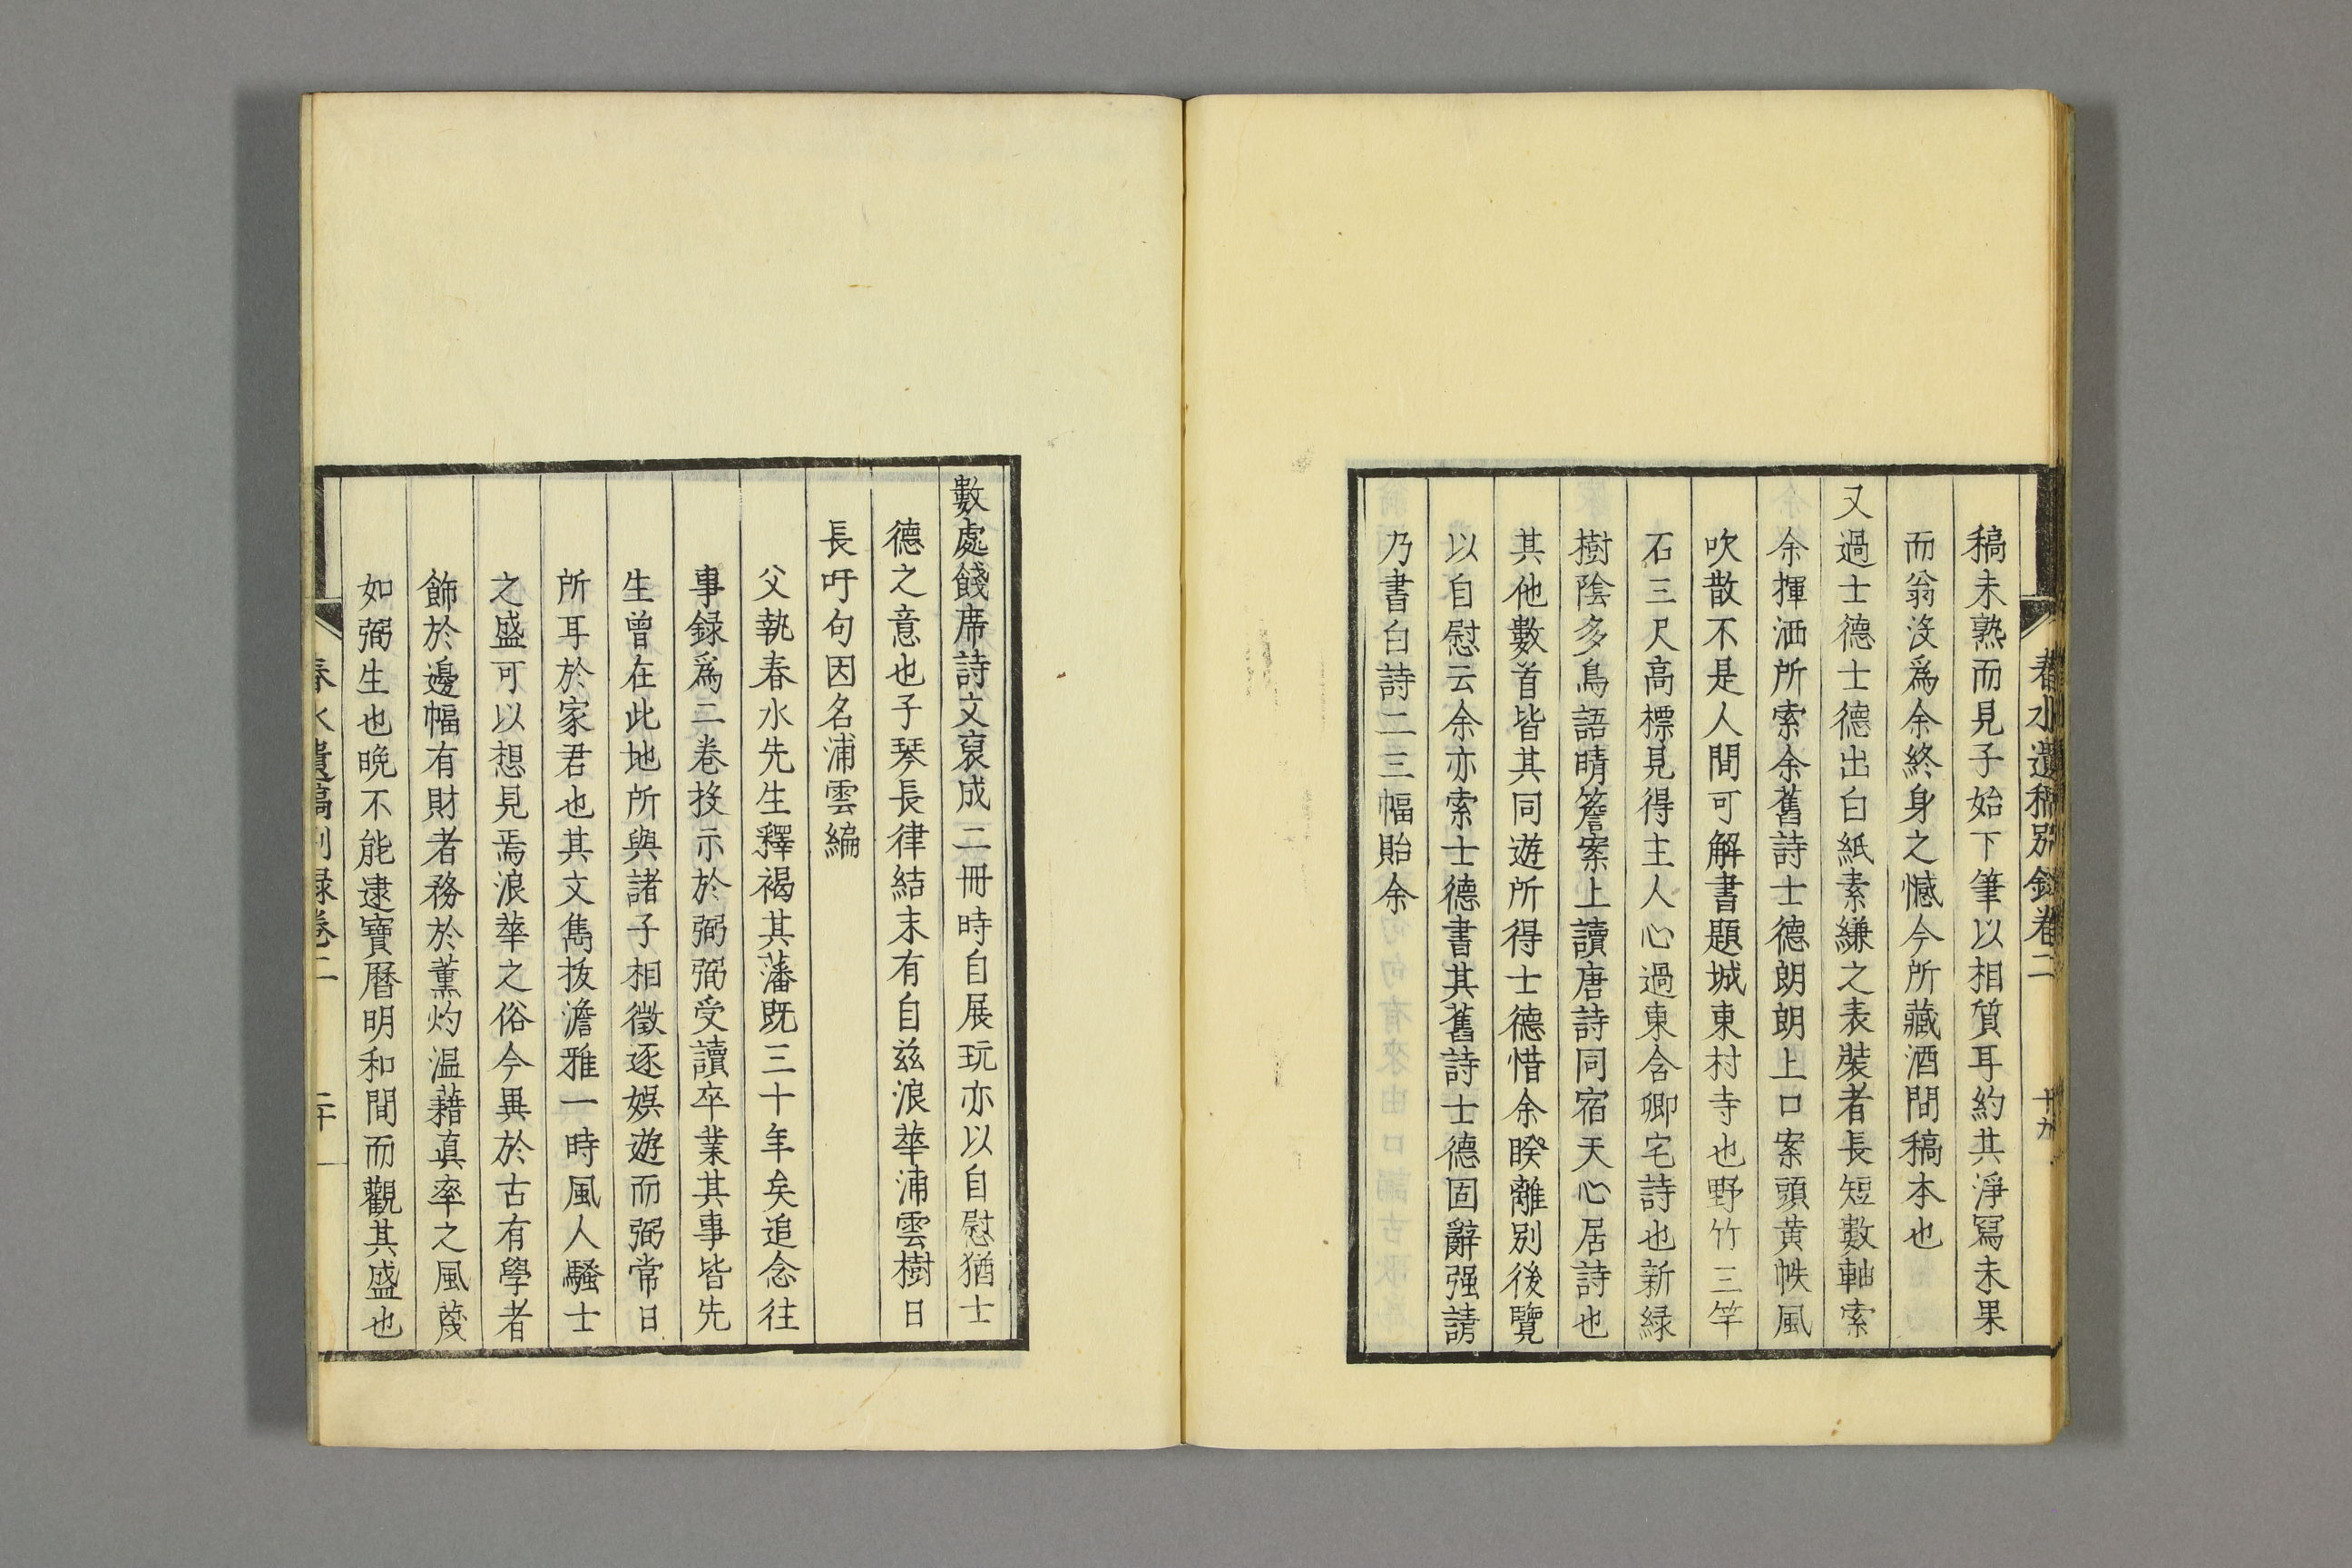 春水遺稿別録卷二
十九
稿未熟而見子始下筆以相質耳約其淨寫未果
而翁沒爲余終身之憾今所藏酒間稿本也
又過士德士德出白紙素縑之表裝者長短數軸索
余揮洒所索余舊詩士德朗朗上口案頭黄帙風
吹散不是人間可解書題城東村寺也野竹三竿
石三尺高標見得主人心過東含卿宅詩也新緑
樹陰多鳥語晴簷案上讀唐詩同宿天心居詩也
其他數首皆其同遊所得士德惜余暌離別後覽
以自慰云余亦索士德書其舊詩士德固辭强請
乃書白詩二三幅貽余
數處餞席詩文裒成二冊時自展玩亦以自慰猶士
德之意也子琴長律結末有自兹浪華浦雲樹日
長吁句因名浦雲編
父執春水先生釋褐其藩既三十年矣追念往
事録爲二卷投示於弼弼受讀卒業其事皆先
生曾在此地所與諸子相徵逐娯遊而弼常日
所耳於家君也其文雋拔澹雅一時風人騷士
之盛可以想見焉浪華之俗今異於古有學者
飾於邊幅有財者務於薫灼温藉真率之風蔑
如弼生也晩不能逮寶曆明和間而觀其盛也
春水遺稿別録卷二
二十